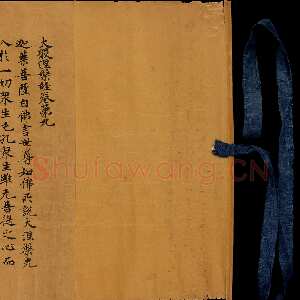 大般涅槃經卷第九
迦葉菩薩白佛言世尊如佛所說大涅槃光
入於一切眾生毛孔眾生雖无菩提之心而
Shufawang.CN